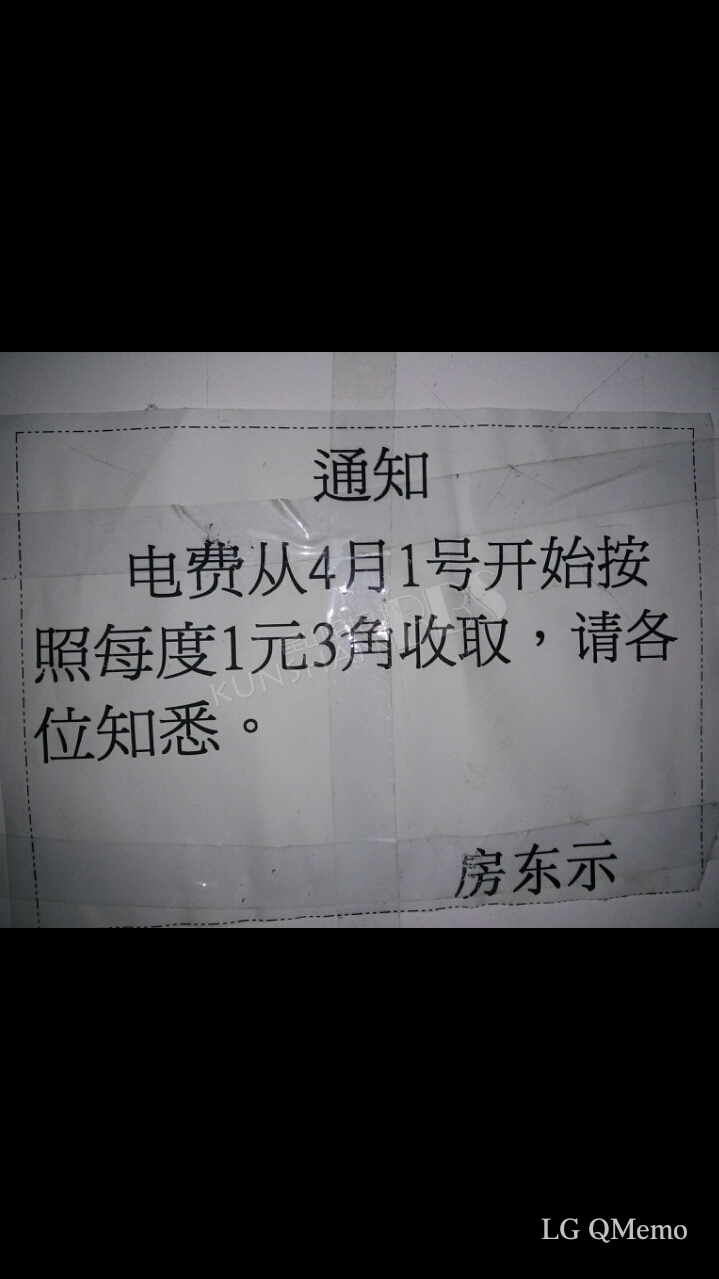 通知
电费从4月1号开始按
照每度1元3角收取，请各
位知悉。
房东示
LG QMemo